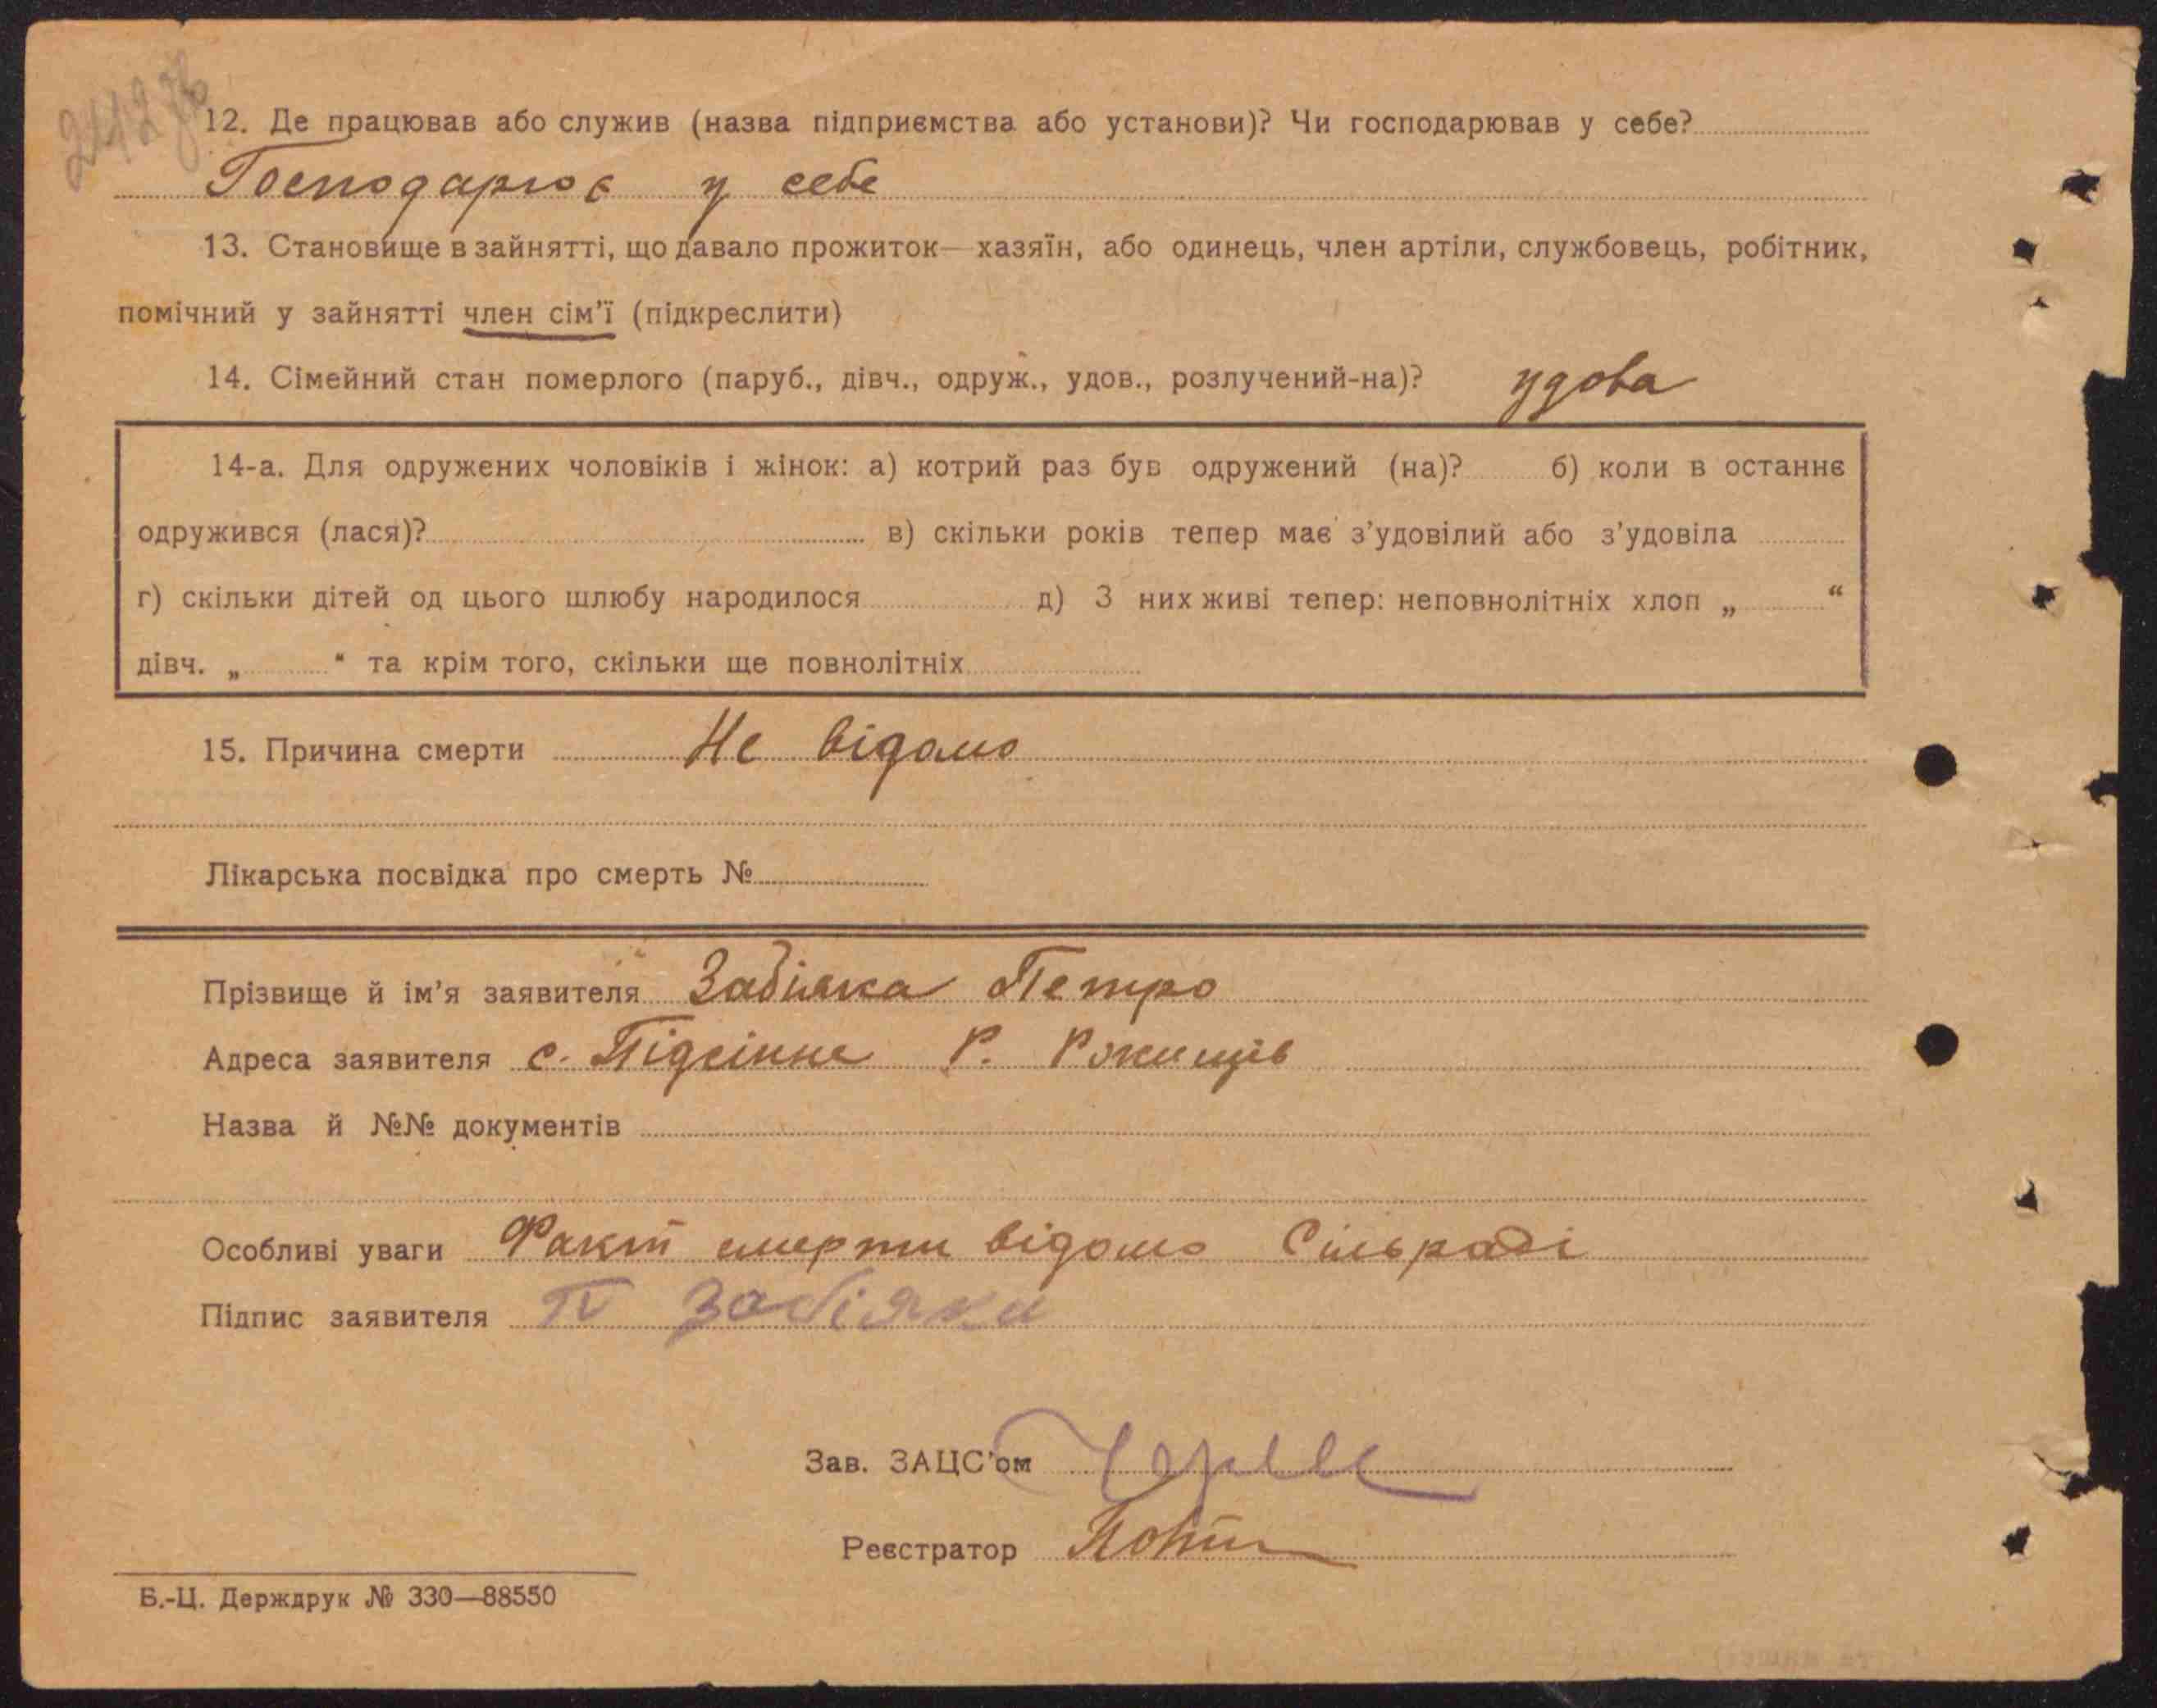 12. Де працював або служив (назва підприємства або установи)? Чи господарював у себе?
Господарює у себе
13. Становище в зайнятті, що давало прожиток—хазяїн, або одинець, член артіли, службовець, робітник,
помічний у зайнятті член сім'ї (підкреслити)
14. Сімейний стан померлого (паруб., дівч., одруж., удов., розлучений-на)? удова
14-а. Для одружених чоловіків і жінок: а) котрий раз був одружений (на)? б) коли в останнє
одружився (лася)? в) скільки років тепер має з'удовілий або з'удовіла
г) скільки дітей од цього шлюбу народилося д) З них живі тепер: неповнолітніх хлоп „ “
дівч. „ “ та крім того, скільки ще повнолітніх
15. Причина смерти Не відомо
Лікарська посвідка про смерть №
Прізвище й ім'я заявителя Забіяка Петро
Адреса заявителя с. Підсінне Р.
Назва й №№ документів
Особливі уваги Факт смерти відомо Сільраді
Підпис заявителя Забіяка
Зав. ЗАЦС'ом
Реєстратор
Б.-Ц. Держдрук № 330—88550